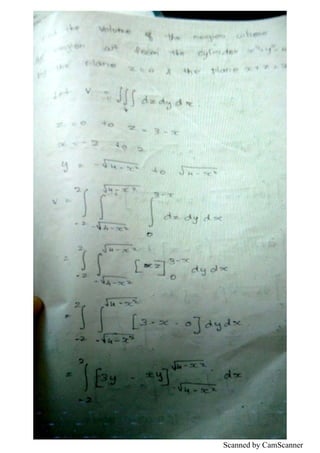 the volume of the region whose
region cut from the cylinder x²+y²=4
by the plane z=0 & the plane x+z=3
Let V = ∭ dz dy dx.
z = 0 to z = 3-x
x = -2 to 2
y = -√4-x² to √4-x²
V = ∫_{-2}^{2} ∫_{-√4-x²}^{√4-x²} ∫_{0}^{3-x} dz dy dx
= ∫_{-2}^{2} ∫_{-√4-x²}^{√4-x²} [z]_{0}^{3-x} dy dx
= ∫_{-2}^{2} ∫_{-√4-x²}^{√4-x²} [3-x-0] dy dx
= ∫_{-2}^{2} [3y - xy]_{-√4-x²}^{√4-x²} dx
Scanned by CamScanner